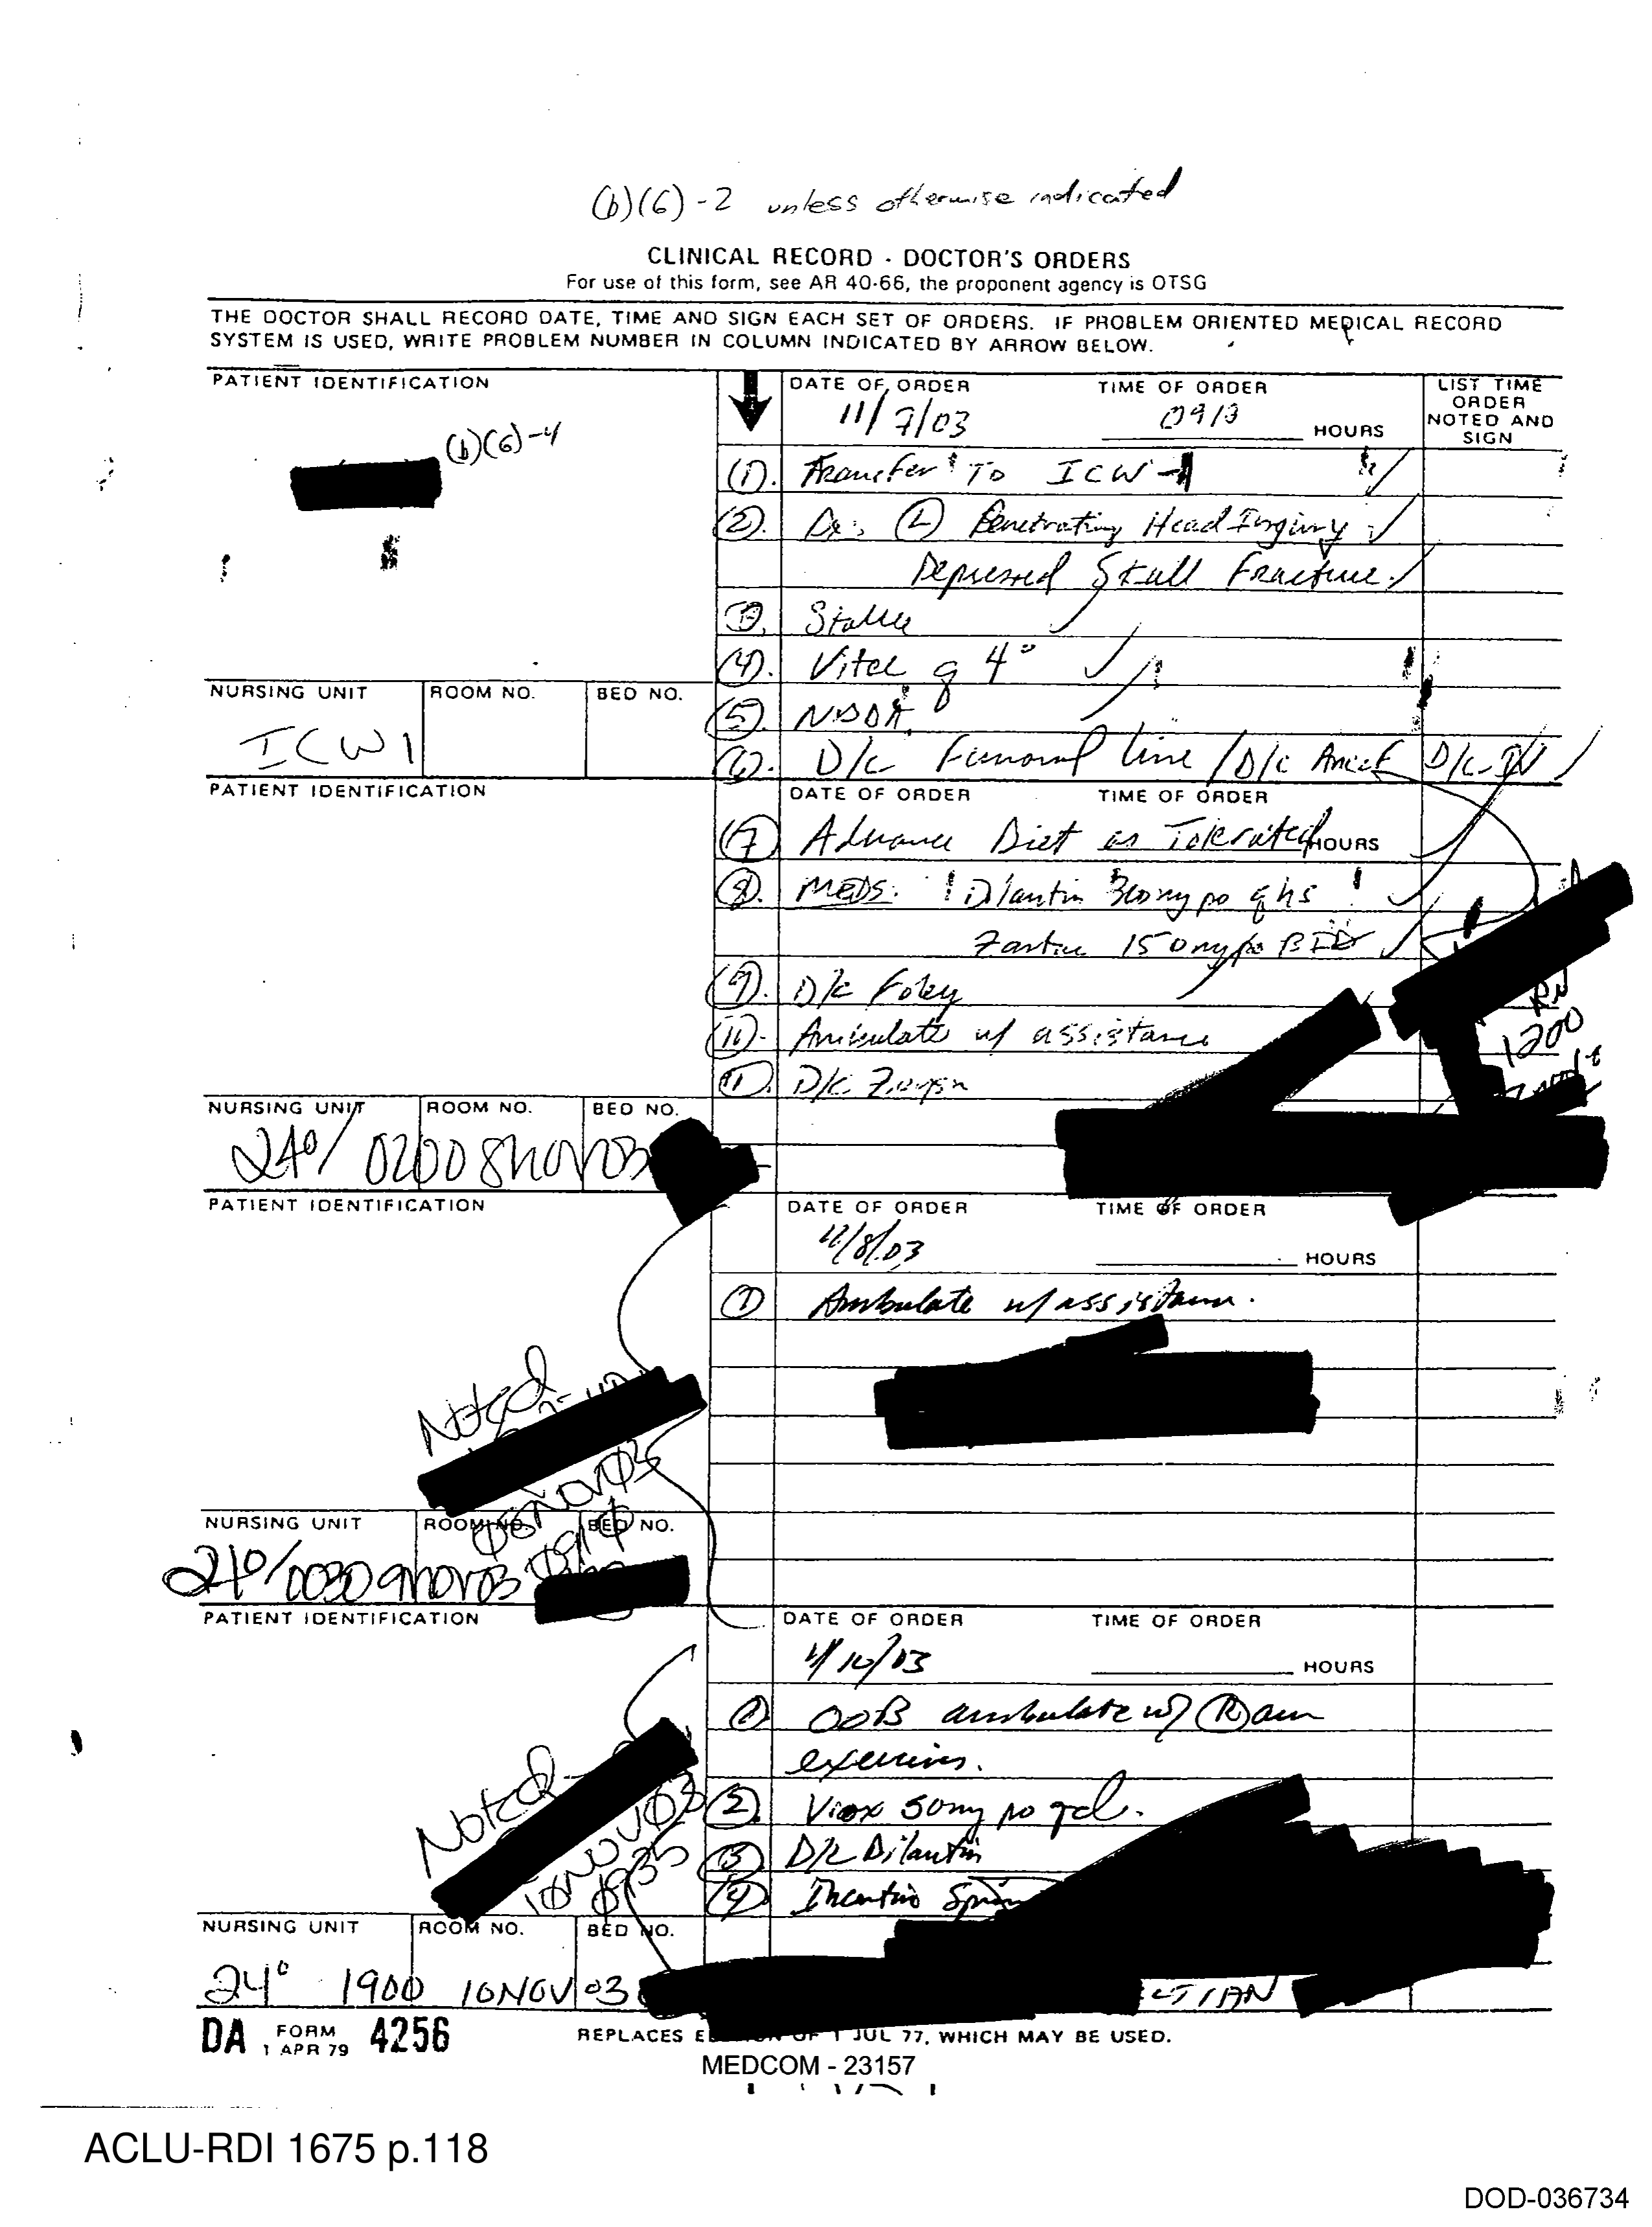 (b)(6)-2 unless otherwise indicated
CLINICAL RECORD - DOCTOR'S ORDERS
For use of this form, see AR 40-66, the proponent agency is OTSG
THE DOCTOR SHALL RECORD DATE, TIME AND SIGN EACH SET OF ORDERS. IF PROBLEM ORIENTED MEDICAL RECORD
SYSTEM IS USED, WRITE PROBLEM NUMBER IN COLUMN INDICATED BY ARROW BELOW.
PATIENT IDENTIFICATION
(b)(6)-4
DATE OF ORDER
11/7/03
TIME OF ORDER
HOURS
LIST TIME
ORDER
NOTED AND
SIGN
(1). Transfer To ICW-1
(2). Dx: (L) Penetrating Head Injury
Depressed Skull Fracture
(3). Stable
(4). Vital q 4°
NURSING UNIT
ICW1
ROOM NO.
BED NO.
(5). NKDA
(6). D/c Femoral line / D/c Ancef D/c IV
PATIENT IDENTIFICATION
DATE OF ORDER
TIME OF ORDER
HOURS
(7) Advance Diet as Tolerated
(8). MEDS: Dilantin 300mg po qhs
Zantac 150mg po BID
(9). D/c Foley
(10). Ambulate w/ assistance
(11). D/c
RN
1200
NURSING UNIT
ROOM NO.
BED NO.
24°/ 0200 8NOV03
PATIENT IDENTIFICATION
DATE OF ORDER
11/8/03
TIME OF ORDER
HOURS
(1) Ambulate w/ assistance.
Noted
08NOV03
0910
NURSING UNIT
ROOM NO.
BED NO.
24°/0030 9NOV03
PATIENT IDENTIFICATION
DATE OF ORDER
11/10/03
TIME OF ORDER
HOURS
(1) OOB ambulate w/ (R) arm
exercises.
(2) Viox 50mg po qd.
(3) D/c Dilantin
(4) Incentive
Noted
10NOV03
0935
NURSING UNIT
ROOM NO.
BED NO.
24° 1900 10NOV03
DA FORM 4256
1 APR 79
REPLACES OF 1 JUL 77, WHICH MAY BE USED.
MEDCOM - 23157
ACLU-RDI 1675 p.118
DOD-036734